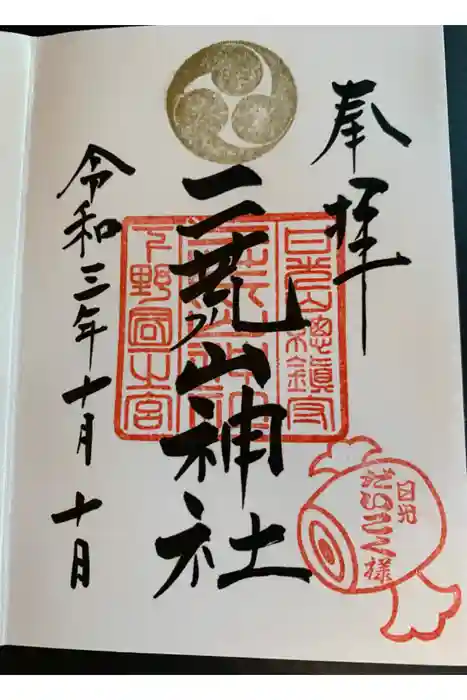 奉拝
日光山總鎮守
二荒山神社
下野國一宮
令和三年十月十日
日光
だいこく様